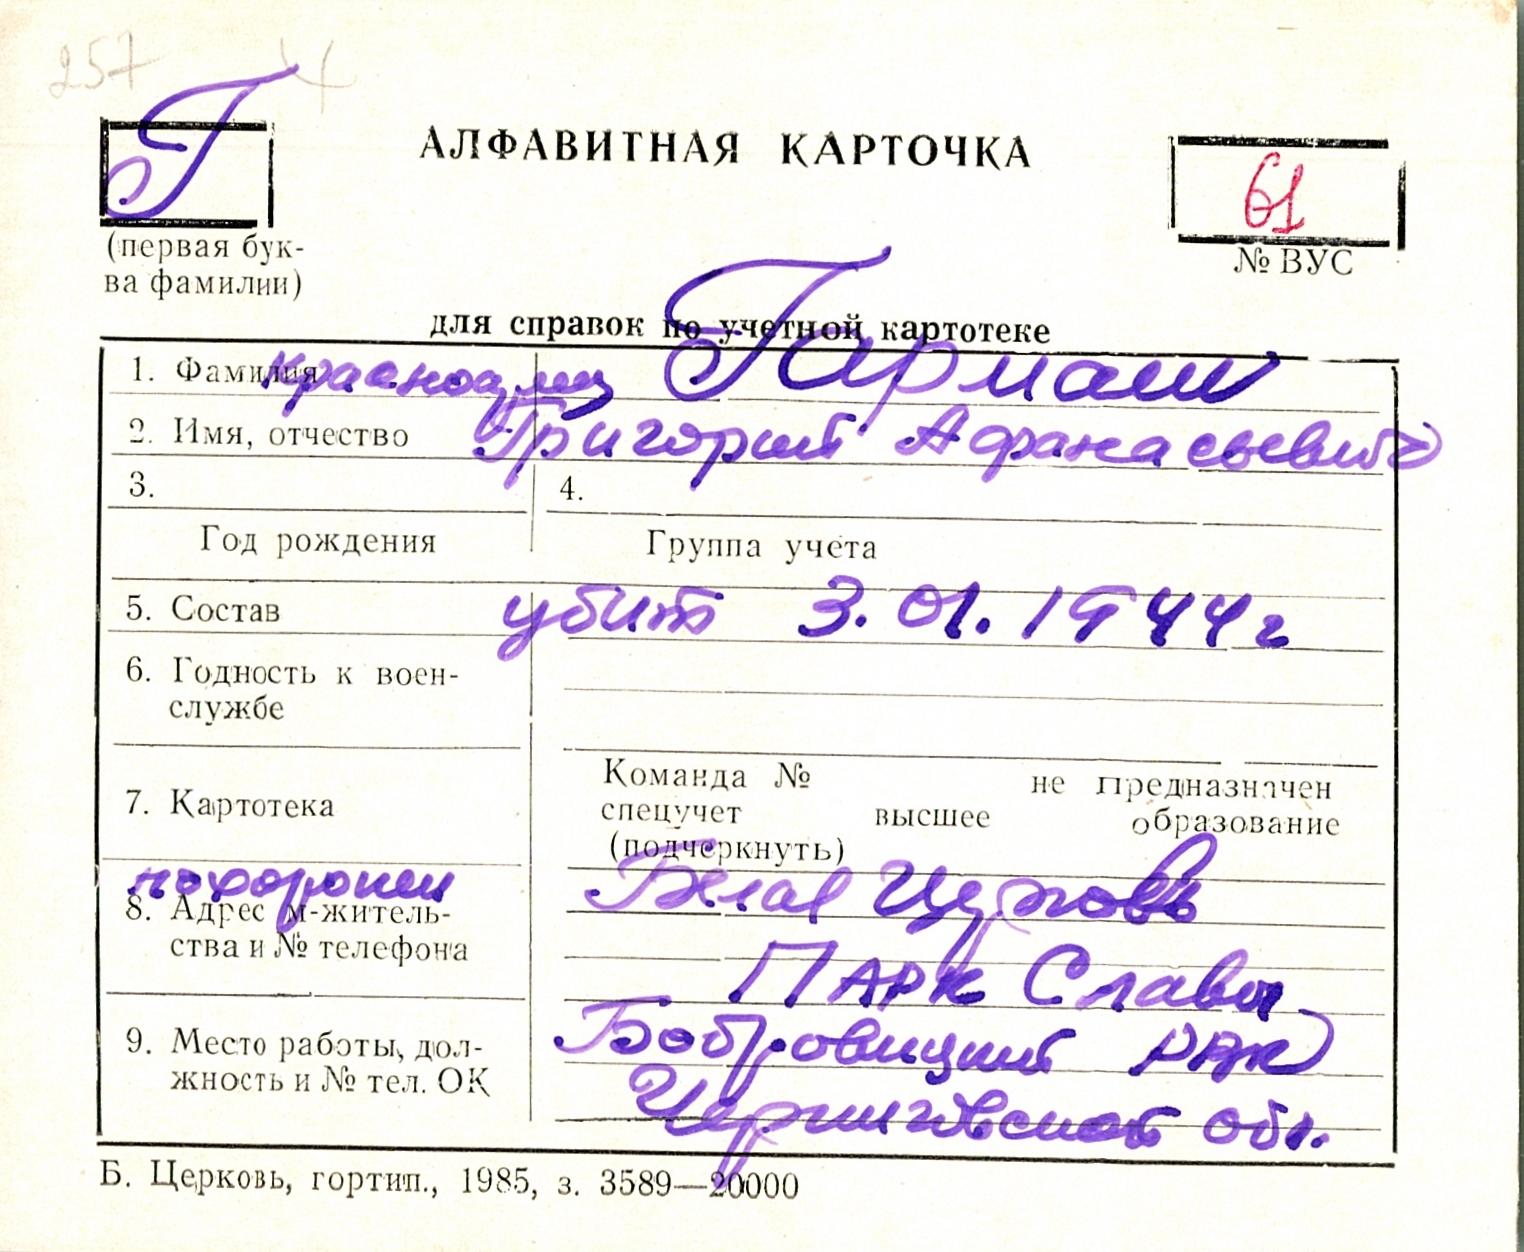 257
Г
АЛФАВИТНАЯ КАРТОЧКА
61
(первая бук-
ва фамилии)
№ ВУС
для справок по учетной картотеке
1. Фамилия Гармаш
2. Имя, отчество Григорий Афанасьевич
3. 4.
Год рождения Группа учета
5. Состав убит 3.01.1944 г
6. Годность к воен-
службе
7. Картотека
Команда № не предназначен
спецучет высшее образование
(подчеркнуть)
похоронен Белая Церковь
8. Адрес м-житель-
ства и № телефона
ПАРК Славы
Бобровицкий РВК
9. Место работы, дол-
жность и № тел. ОК
Черниговской обл.
Б. Церковь, гортип., 1985, з. 3589—20000